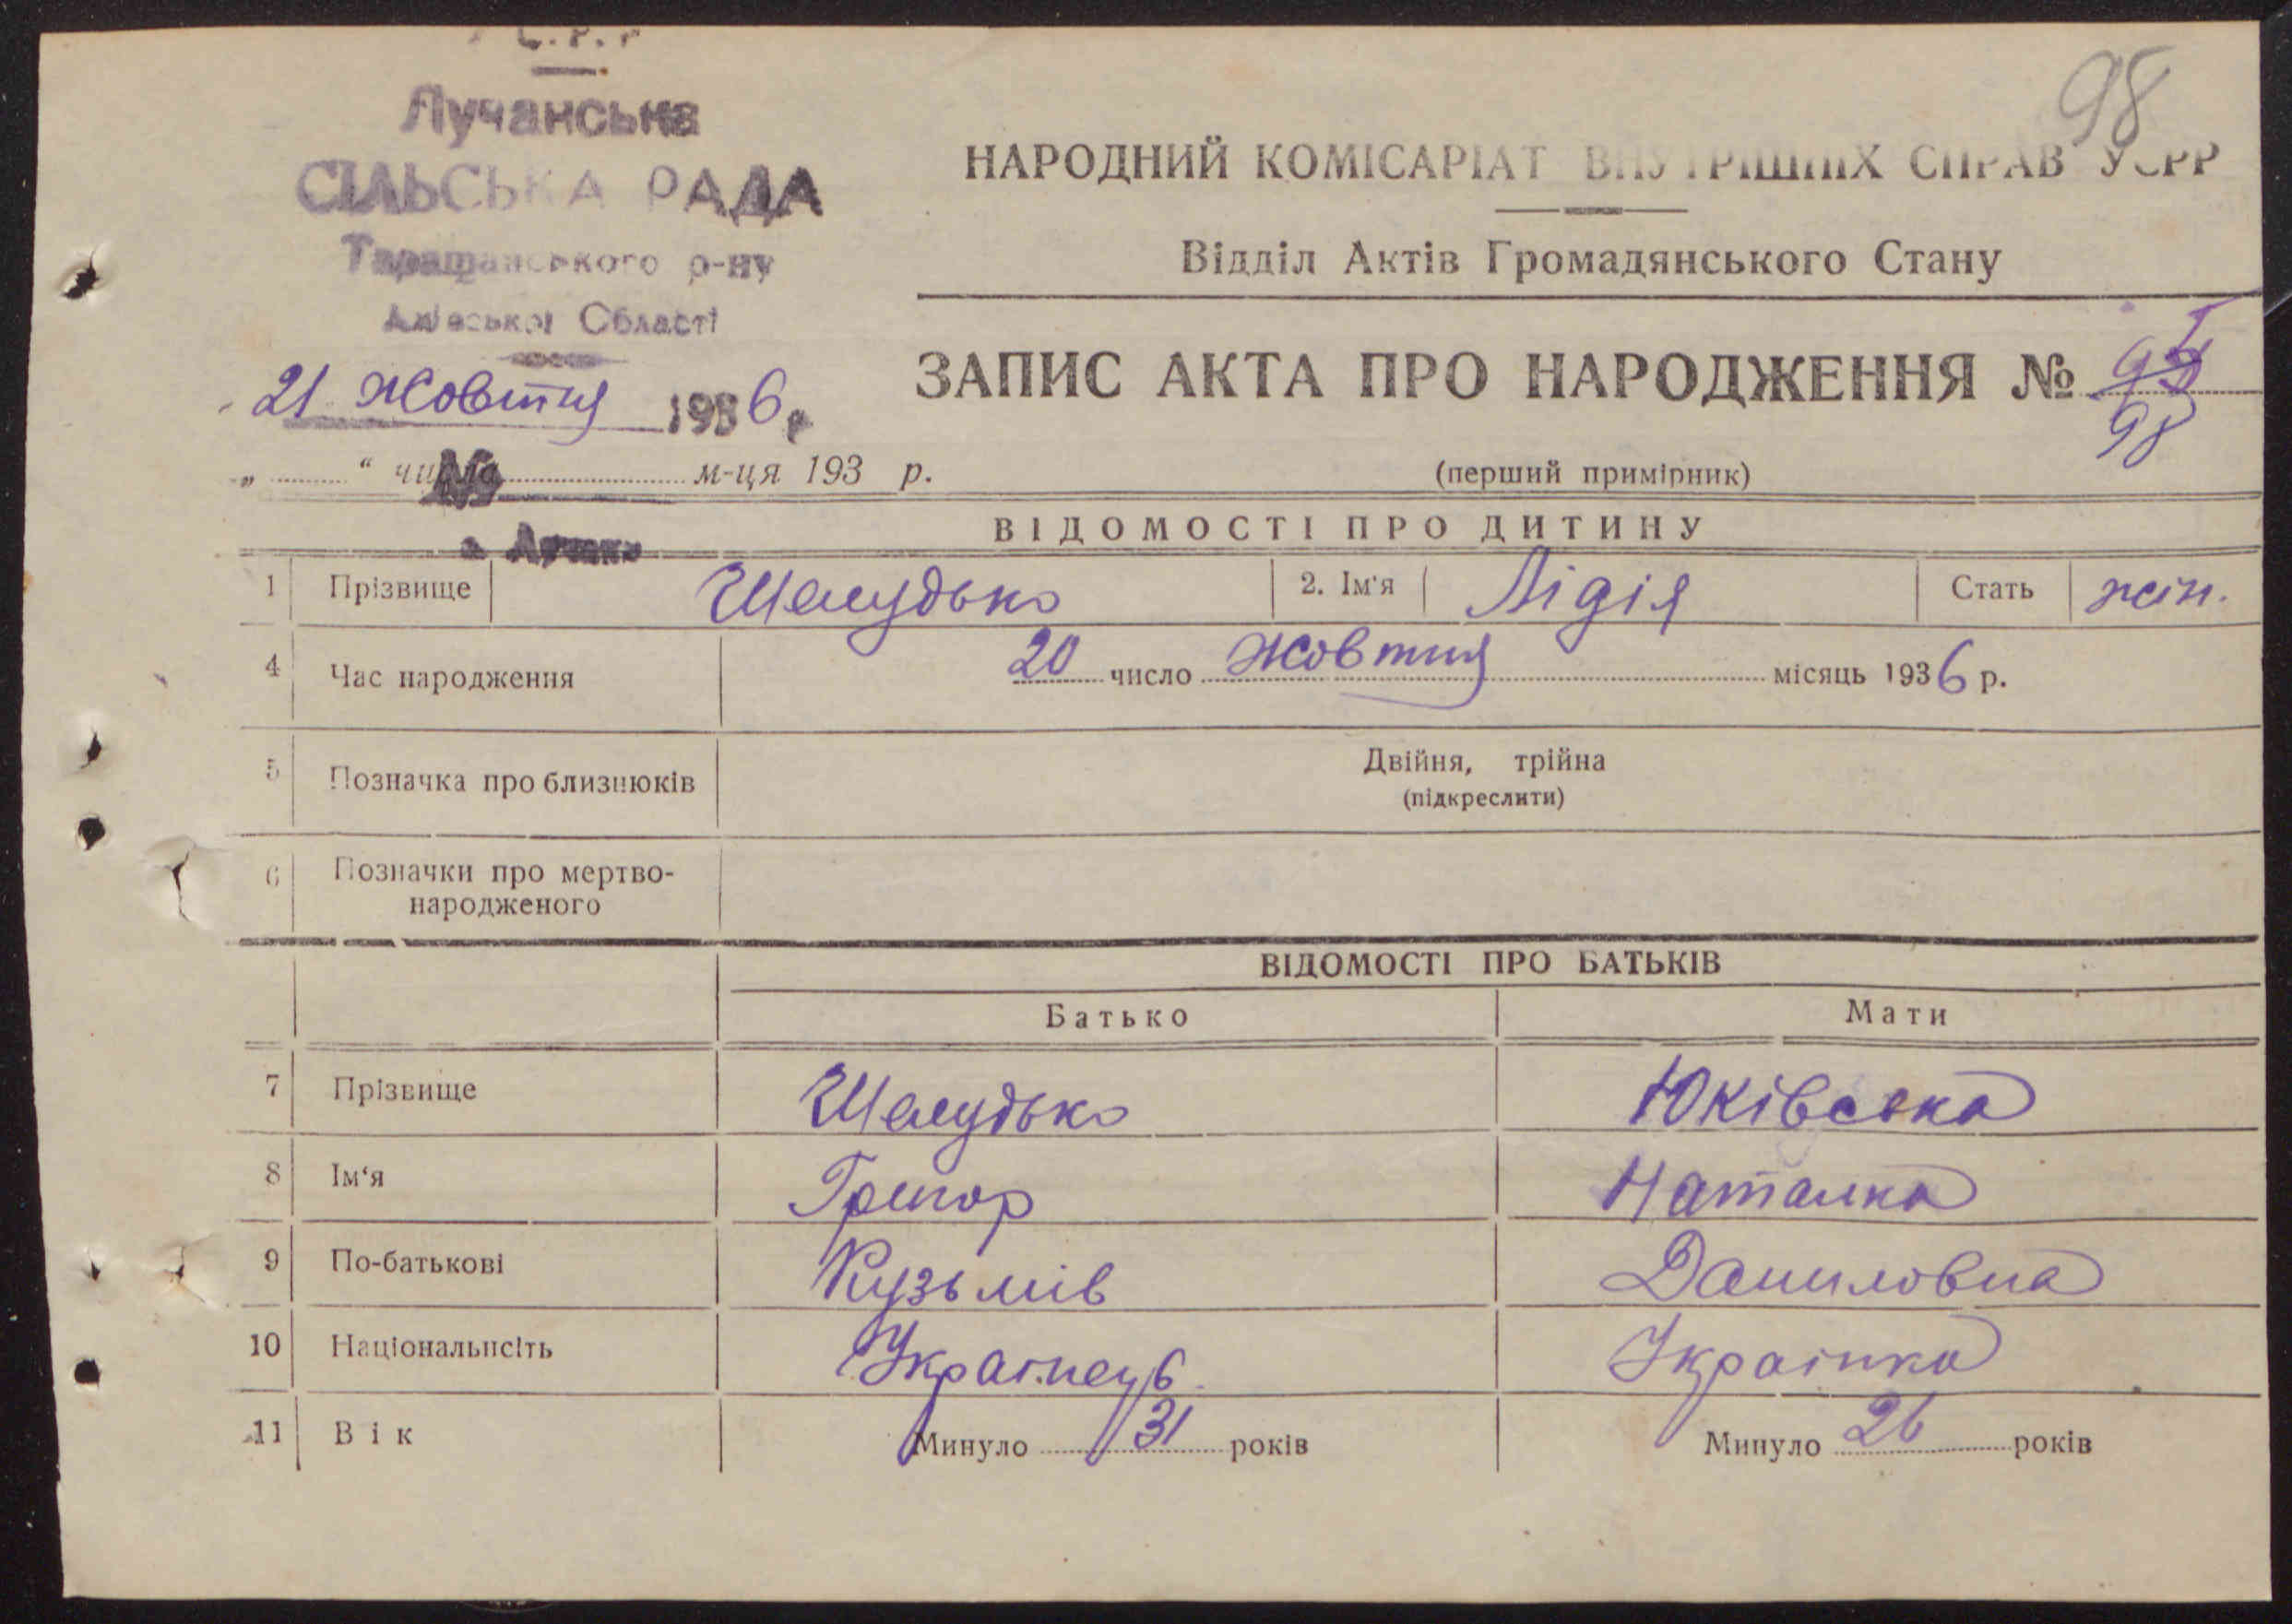 Лучанська
СІЛЬСЬКА РАДА
Таращанського р-ну
Київської Області
21 жовтня 1936 р
98
НАРОДНИЙ КОМІСАРІАТ ВНУТРІШНІХ СПРАВ УСРР
Відділ Актів Громадянського Стану
ЗАПИС АКТА ПРО НАРОДЖЕННЯ №
98
„ “ числа м-ця 193 р.
(перший примірник)
ВІДОМОСТІ ПРО ДИТИНУ
1 Прізвище Шелудько 2. Ім'я Лідія Стать жін.
4 Час народження 20 число жовтня місяць 1936 р.
5 Позначка про близнюків Двійня, трійна
(підкреслити)
6 Позначки про мертво-
народженого
ВІДОМОСТІ ПРО БАТЬКІВ
Батько Мати
7 Прізвище Шелудько Юківська
8 Ім‘я Григор Наталка
9 По-батькові Кузьмів Даниловна
10 Національнсіть Українець Українка
11 Вік Минуло 31 років Минуло 26 років